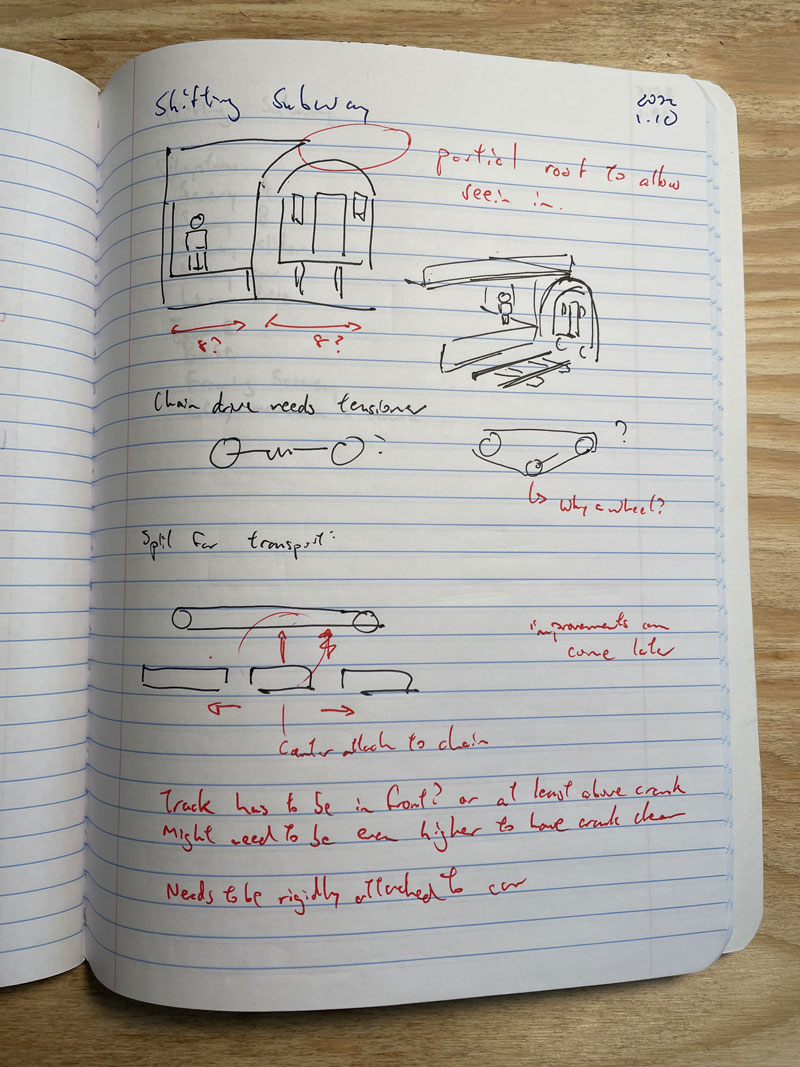 Shifting Subway
2022
1.10
partial roof to allow
seein in.
8?
8?
Chain drive needs tensioner
?
?
↳ Why a wheel?
Split for transport:
improvements can
come later
Center attach to chain
Track has to be in front? or at least above crank
Might need to be even higher to have crank clear
Needs to be rigidly attached to car